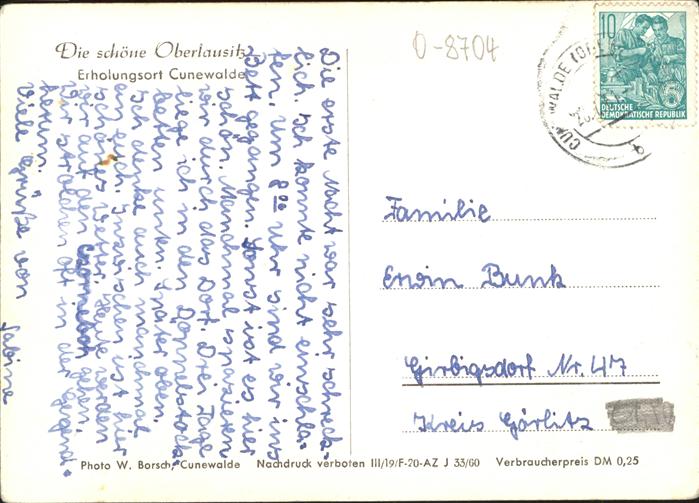 Die schöne Oberlausitz
Erholungsort Cunewalde
0-8704
10
DEUTSCHE
DEMOKRATISCHE REPUBLIK
Die erste Nacht war sehr schreck-
lich. Ich konnte nicht einschla-
fen. Um 8⁰⁰ Uhr sind wir ins
Bett gegangen. Sonst ist es hier
schön. Manchmal spazieren
wir durch das Dorf. Drei Tage
liege ich in den Doppelstock-
betten unten. Später oben.
Ich denke auch manchmal
an euch. Inzwischen ist hier
schönes Wetter. Heute werden
wir auf den Czorneboh gehen.
Wir strolchen oft in der Gegend
herum.
Viele Grüße von
Sabine
Familie
Erwin Bunk
Girbigsdorf Nr. 47
Kreis Görlitz
Photo W. Borsch, Cunewalde Nachdruck verboten III/19/F-20-AZ J 33/60 Verbraucherpreis DM 0,25